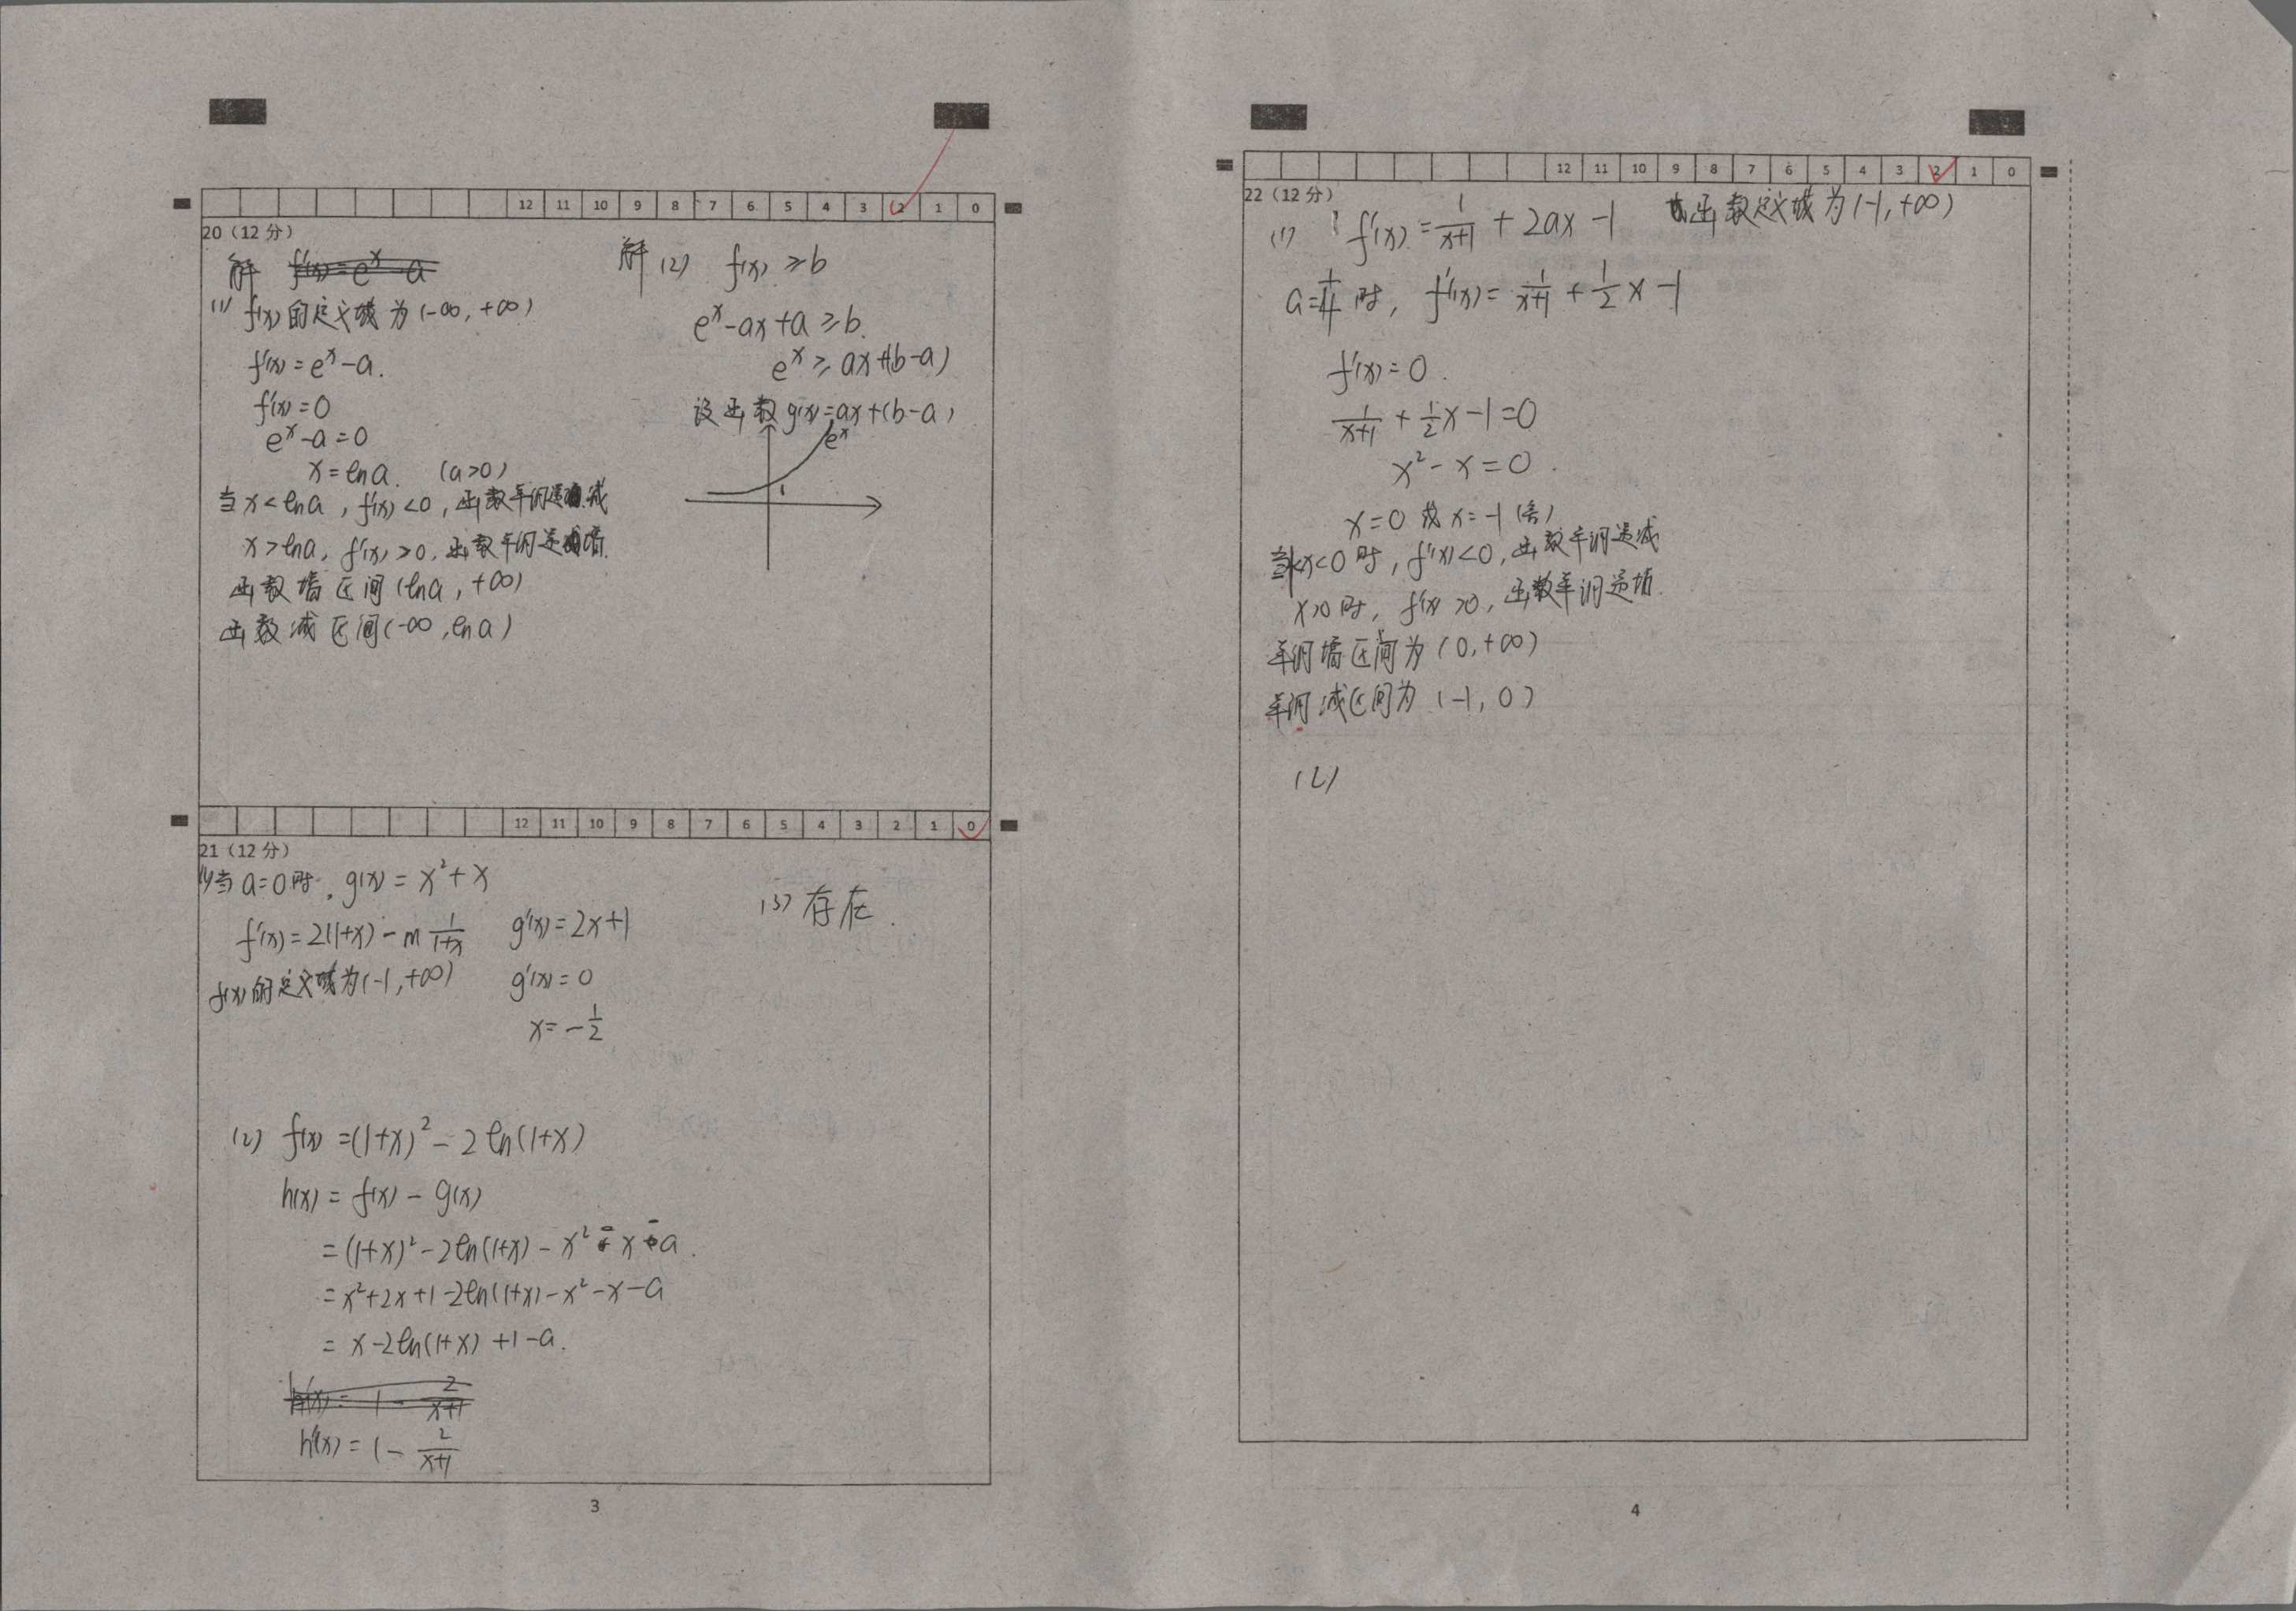 12 11 10 9 8 7 6 5 4 3 2 1 0
20（12分）
解
(1) f(x)的定义域为(-∞, +∞)
f'(x)=e^x-a.
f'(x)=0
e^x-a=0
x=lna. (a>0)
当x<lna, f'(x)<0, 函数单调递减
x>lna, f'(x)>0, 函数单调递增.
函数增区间(lna, +∞)
函数减区间(-∞, lna)
解(2) f(x)≥b
e^x-ax+a≥b.
e^x≥ax+(b-a)
设函数g(x)=ax+(b-a)
e^x
1
12 11 10 9 8 7 6 5 4 3 2 1 0
21（12分）
(1)当a=0时, g(x)=x²+x
f'(x)=2(1+x)-m 1/(1+x) g'(x)=2x+1
f(x)的定义域为(-1, +∞) g'(x)=0
x=-1/2
(3)存在.
(2) f(x)=(1+x)²-2ln(1+x)
h(x)=f(x)-g(x)
=(1+x)²-2ln(1+x)-x²-x-a.
=x²+2x+1-2ln(1+x)-x²-x-a
=x-2ln(1+x)+1-a.
h'(x)=1-2/(x+1)
3
12 11 10 9 8 7 6 5 4 3 2 1 0
22（12分）
(1) f'(x)=1/(x+1)+2ax-1 函数定义域为(-1, +∞)
a=1/4时, f'(x)=1/(x+1)+1/2x-1
f'(x)=0.
1/(x+1)+1/2x-1=0
x²-x=0.
x=0或x=-1(舍)
当-1<x<0时, f'(x)<0, 函数单调递减
x>0时, f'(x)>0, 函数单调递增.
单调增区间为(0, +∞)
单调减区间为(-1, 0)
(2)
4